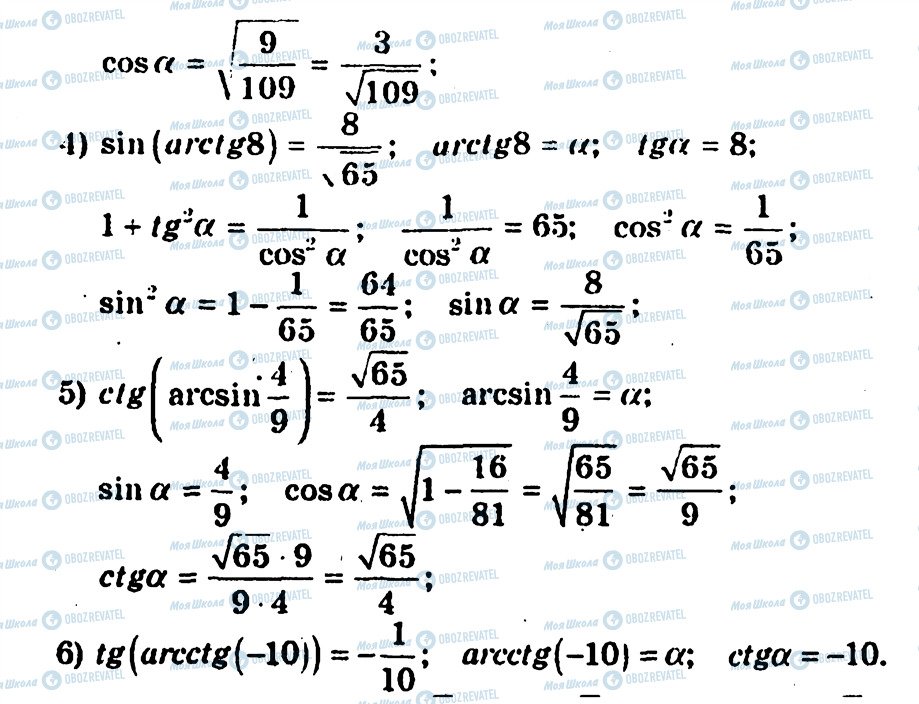 cos α = √(9/109) = 3/√109;
4) sin(arctg8) = 8/√65; arctg8 = α; tgα = 8;
1 + tg²α = 1/cos² α; 1/cos² α = 65; cos² α = 1/65;
sin² α = 1 − 1/65 = 64/65; sin α = 8/√65;
5) ctg(arcsin 4/9) = √65/4; arcsin 4/9 = α;
sin α = 4/9; cos α = √(1 − 16/81) = √(65/81) = √65/9;
ctgα = √65 · 9/9 · 4 = √65/4;
6) tg(arcctg(−10)) = −1/10; arcctg(−10) = α; ctgα = −10.
Моя Школа OBOZREVATEL